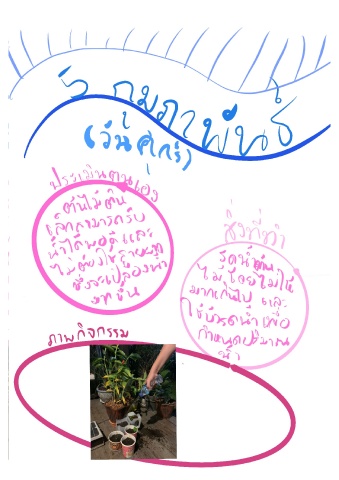 5 กุมภาพันธ์
(วันศุกร์)
ประเมินตนเอง
ต้นไม้ต้น
เล็กสามารถรับ
น้ำได้พอดีและ
ไม่ต้องใช้
ซึ่งจะเปลืองน้ำ
มากขึ้น
สิ่งที่ทำ
รดน้ำต้น
ไม้โดยไม่ให้
มากเกินไป และ
ใช้ขวดน้ำเพื่อ
กำหนดปริมาณ
น้ำ
ภาพกิจกรรม